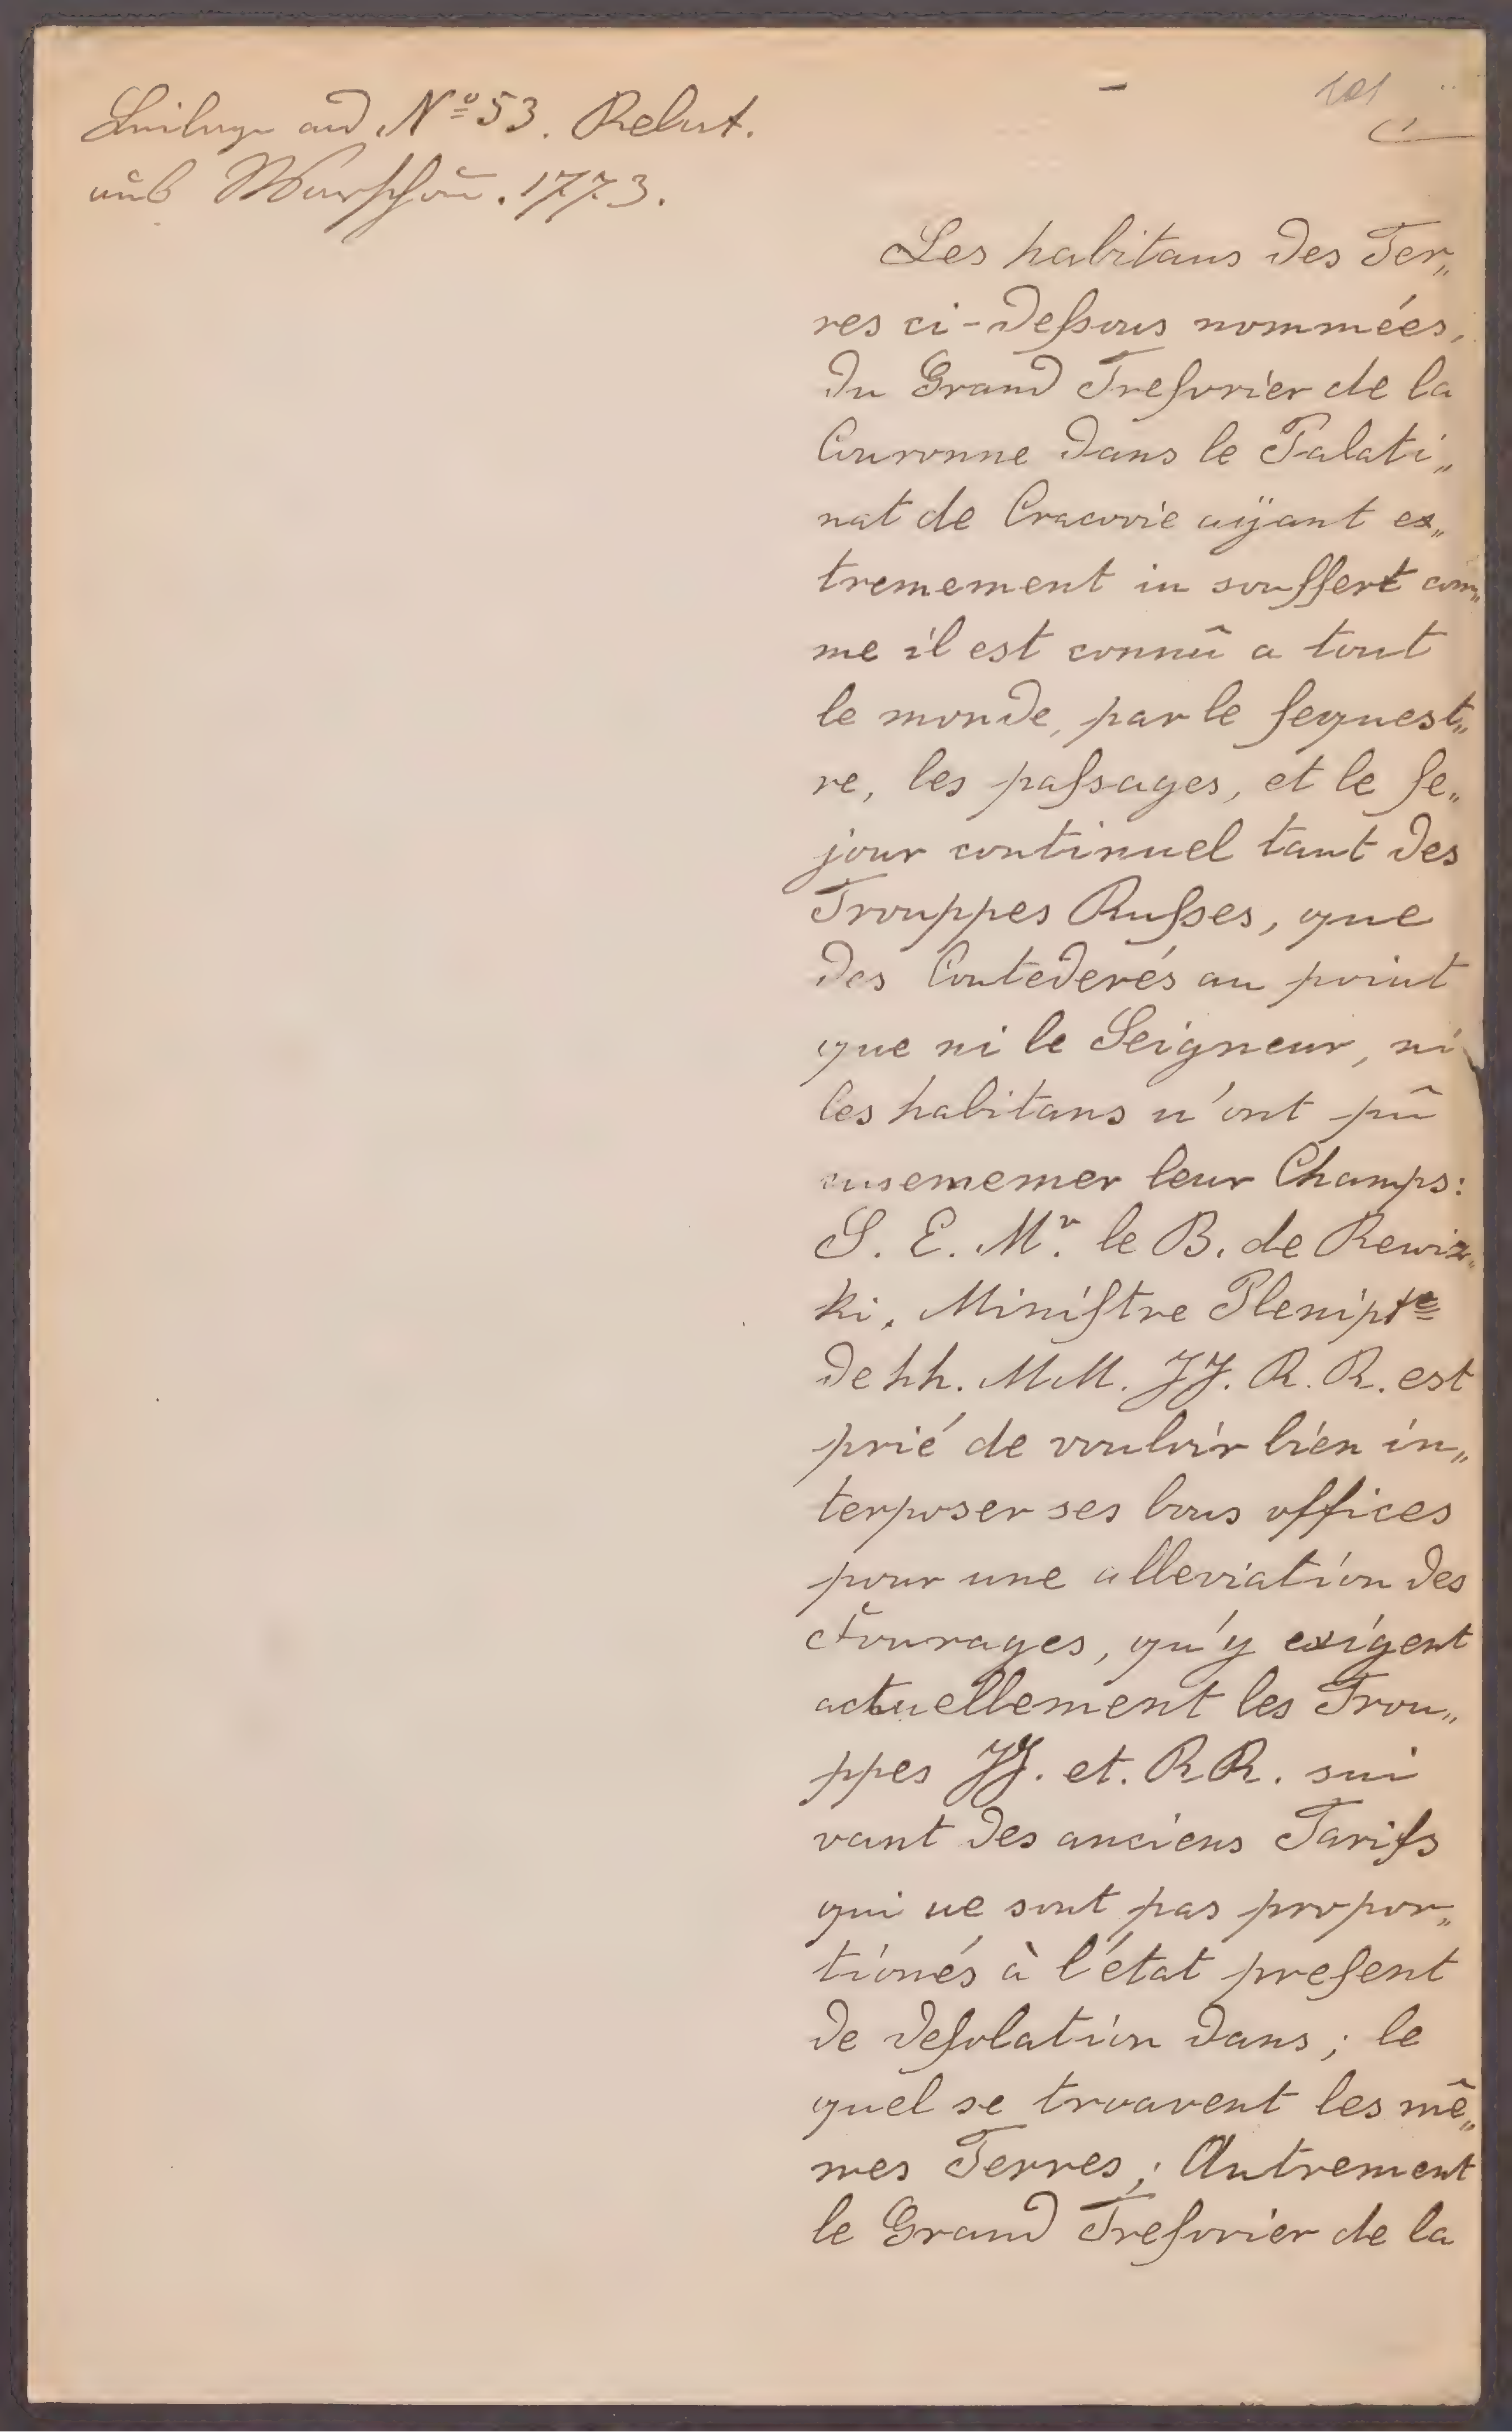 Beilage ad Nº 53. Relat.
aus Warschau. 1773.
101
Les habitans des Ter„
res ci-dessous nommées,
du Grand Tresorier de la
Couronne dans le Palati„
nat de Cracovie aÿant ex„
tremement in souffert com„
me il est connû a tout
le monde, par le sequest„
re, les passages, et le se„
jour continuel tant des
Trouppes Russes, que
des Contederés au point
que ni le Seigneur, ni
les habitans n'ont pû
ensememer leur Champs:
S. E. Mr. le B. de Rewiz„
ki, Ministre Plenipte
de hh. MM. JJ. R. R. est
prié de vouloir bien in„
terposer ses bons offices
pour une alleviation des
Fourages, qu'y exigent
actuellement les Trou„
ppes JJ. et. RR. sui
vant des anciens Tarifs
qui ne sont pas propor„
tionés à l'état present
de desolation dans; le
quel se trouvent les mê„
mes Terres; Autrement
le Grand Tresorier de la